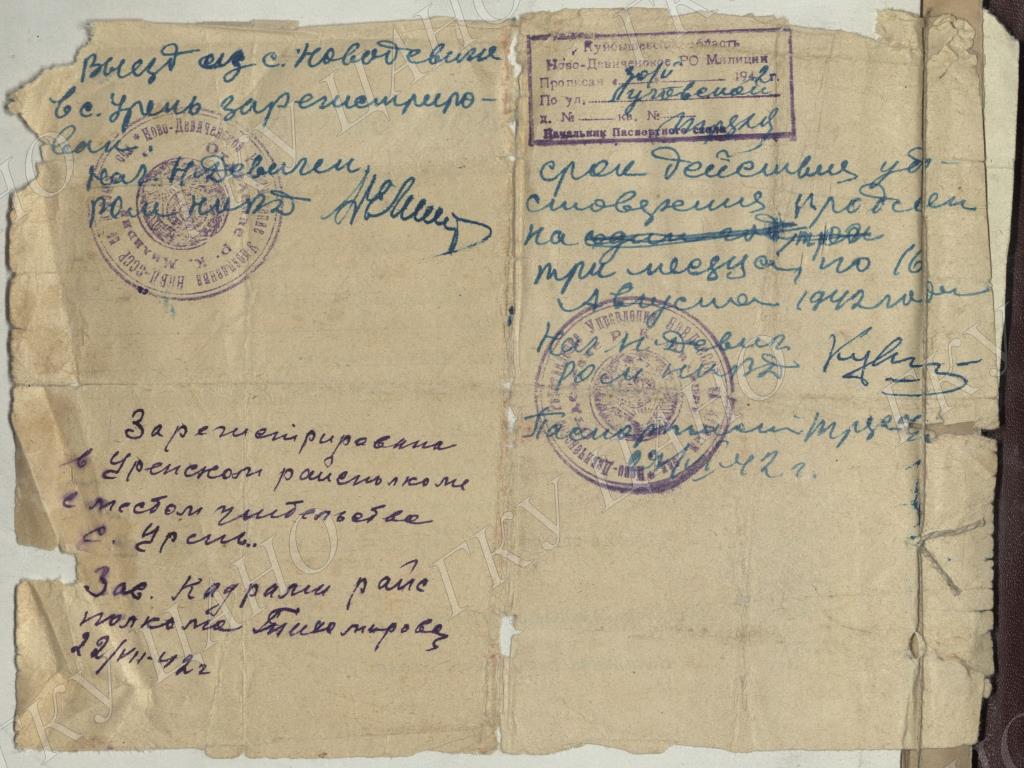 Выезд из с. Новодевичье
в с. Урень зарегистриро-
ван.
Нач Н Девичен
РОМ НКВД
Зарегистрирована
в Уренском райисполкоме
с местом жительства
с. Урень..
Зав. Кадрами райис
полкома Тихомирова
22/VII-42 г
Куйбышевская область
Ново-Девиченское РО Милиции
Прописан « 30/V 1942 г.
По ул.
д. № кв. №
Начальник Паспортного стола
срок действия удо-
стоверения продлен
на один год
три месяца, по 16
Августа 1942 года
Нач Н Девич
РОМ НКВД
Паспортист
42 г.
ГКУ ЦАНО